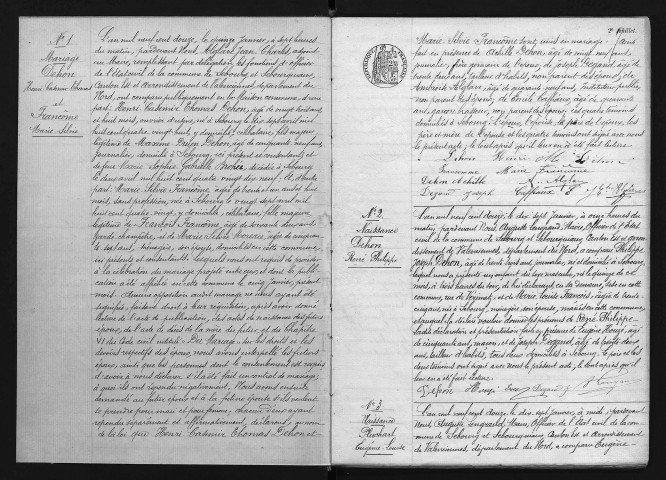 N° 1.
Mariage
Dehon
Henri Casimir Thomas
et
Francome
Marie Silvie
L'an mil neuf cent douze, le quinze janvier, à sept heures
du matin, pardevant Nous, Jean Charles, adjoint
au Maire, remplissant par délégation les fonctions d'officier
de l'État civil de la commune de Sebourg et Sebourquiaux,
Canton Est et arrondissement de Valenciennes, département du
Nord, ont comparu publiquement en la maison commune, d'une
part: Henri Casimir Thomas Dehon, âgé de vingt
et huit mois, ouvrier, né à Sebourg le dix sept avril mil
huit cent quatre vingt huit, y domicilié, célibataire, fils majeur,
légitime de Maxime Dehon, âgé de cinquante neuf ans,
journalier, domicilié à Sebourg, ici présent et consentant; et
de feue Marie Sophie Gabrielle, décédée à Sebourg
le deux avril mil huit cent quatre vingt dix neuf. Et d'autre
part: Marie Silvie Francome, âgée de
mois, sans profession, née à Sebourg le vingt sept avril mil
huit cent quatre vingt, y domiciliée, célibataire, fille majeure,
légitime de Francome, âgé de soixante cinq ans,
garde champêtre, et de Marie, âgée de cinquante
ans, ménagère, son épouse, domiciliés en cette commune,
ici présents et consentants. Lesquels nous ont requis de procéder
à la célébration du mariage projeté entre eux, et dont la publi-
cation a été affichée en cette commune le cinq janvier, présent
mois. Aucune opposition audit mariage ne nous ayant été
signifiée, faisant droit à leur réquisition, après avoir donné
lecture de l'acte de publication, des actes de naissance des futurs
époux, de l'acte de décès de la mère du futur, et du chapitre
VI du Code civil intitulé: Du Mariage, sur les droits et les
devoirs respectifs des époux, nous avons interpellé les futurs
époux, ainsi que les personnes dont le consentement est requis
d'avoir à nous déclarer s'il a été fait un contrat de mariage,
à quoi ils ont répondu négativement. Nous avons ensuite
demandé au futur époux et à la future épouse s'ils veulent
se prendre pour mari et pour femme, chacun d'eux ayant
répondu séparément et affirmativement, déclarons, au nom
de la loi que Henri Casimir Thomas Dehon et
2e feuillet.
Marie Silvie Francome sont unis en mariage. Ce
fait en présence de Achille Dehon, âgé de vingt neuf ans,
journalier, frère germain de l'époux, de Joseph Degand, âgé de
trente deux ans, tailleur d'habits, non parent des époux, de
âgé de quarante neuf ans, Instituteur public,
non parent des époux, et de Émile Caffiaux, âgé de quarante
ans, garçon brasseur, non parent des époux, lesquels témoins
domiciliés à Sebourg. L'époux, l'épouse, le père de l'époux, les
père et mère de l'épouse et les quatre témoins ont signé avec nous
le présent acte, le tout après qu'il leur en a été fait lecture.
Dehon Henri M Dehon
Francome Marie Francome
Dehon Achille
Degand Joseph Caffiaux E
N° 2.
Naissance
Dehon
Henri Philippe
L'an mil neuf cent douze, le dix sept janvier, à onze heures du
matin, pardevant Nous, Auguste Lengrand, Maire, Officier de l'État
civil de la commune de Sebourg et Sebourquiaux, Canton Est et arron-
dissement de Valenciennes, département du Nord, a comparu Philippe
Joseph Dehon, âgé de trente sept ans, journalier, né et domicilié à Sebourg,
lequel nous a présenté un enfant du sexe masculin, né le quinze de ce
mois, à trois heures du soir, de lui déclarant, en sa demeure, sise en cette
commune, rue de, et de Marie Louise François, âgée de trente
cinq ans, née à Sebourg, ménagère, son épouse, mariés en cette commune,
et auquel il a déclaré vouloir donner les prénoms de Henri Philippe.
Ladite déclaration et présentation faites en présence de Eugène Hougé, âgé
de cinquante ans, maçon, et de Joseph Degand, âgé de trente deux
ans, tailleur d'habits, tous deux domiciliés à Sebourg. Le père et les
deux témoins ont signé avec nous le présent acte, le tout après qu'il
leur en a été fait lecture.
Dehon Degand J
N° 3.
Naissance
Plouchart
Eugène Louise
L'an mil neuf cent douze, le dix sept janvier, à midi, pardevant
Nous, Auguste Lengrand, Maire, Officier de l'État civil de la com-
mune de Sebourg et Sebourquiaux, Canton Est et arrondissement
de Valenciennes, département du Nord, a comparu Eugène